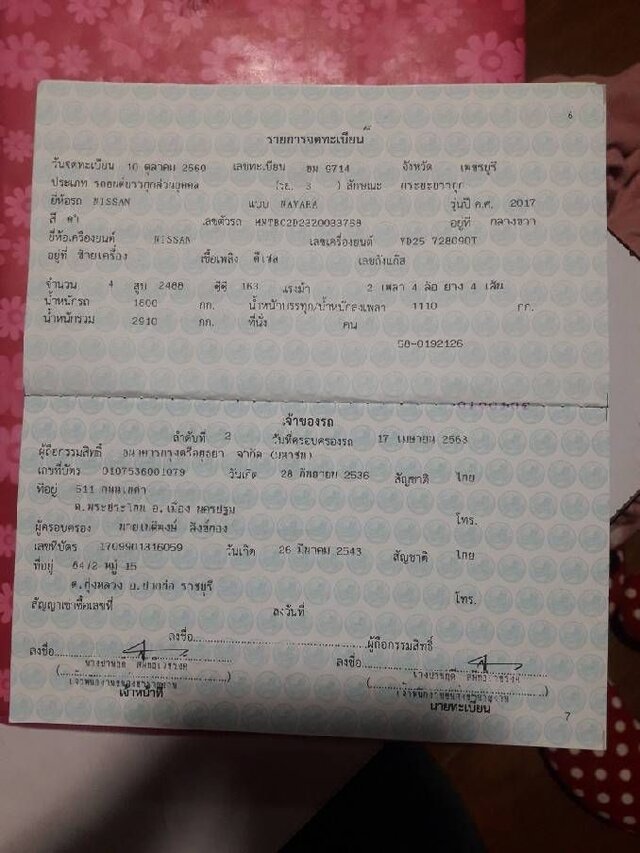 6
รายการจดทะเบียน
วันจดทะเบียน 10 ตุลาคม 2560 เลขทะเบียน 9714 จังหวัด เพชรบุรี
ประเภท รถยนต์บรรทุกส่วนบุคคล (รย. 3 ) ลักษณะ กระบะบรรทุก
ยี่ห้อรถ NISSAN แบบ NAVARA รุ่นปี ค.ศ. 2017
สี ดำ เลขตัวรถ อยู่ที่ กลางขวา
ยี่ห้อเครื่องยนต์ NISSAN เลขเครื่องยนต์ YD25 อยู่ที่ ซ้ายเครื่อง เชื้อเพลิง ดีเซล เลขถังแก๊ส
จำนวน 4 สูบ 2488 ซีซี 163 แรงม้า 2 เพลา 4 ล้อ ยาง 4 เส้น
น้ำหนักรถ 1800 กก. น้ำหนักบรรทุก/น้ำหนักลงเพลา 1110 กก.
น้ำหนักรวม 2910 กก. ที่นั่ง คน
58-0192126
เจ้าของรถ
ลำดับที่ 2 วันที่ครอบครองรถ 17 เมษายน 2563
ผู้ถือกรรมสิทธิ์ ธนาคารกรุงศรีอยุธยา จำกัด (มหาชน)
เลขที่บัตร 0107536001079 วันเกิด 28 กันยายน 2536 สัญชาติ ไทย
ที่อยู่ 511
ต.พระประโทน อ.เมือง นครปฐม โทร.
ผู้ครอบครอง
เลขที่บัตร 1709901316059 วันเกิด 26 มีนาคม 2543 สัญชาติ ไทย
ที่อยู่ 64/2 หมู่ 15
ต.ทุ่งหลวง อ.ปากท่อ ราชบุรี โทร.
สัญญาเช่าซื้อเลขที่ ลงวันที่
ลงชื่อ ผู้ถือกรรมสิทธิ์
ลงชื่อ ลงชื่อ
เจ้าหน้าที่ นายทะเบียน
7